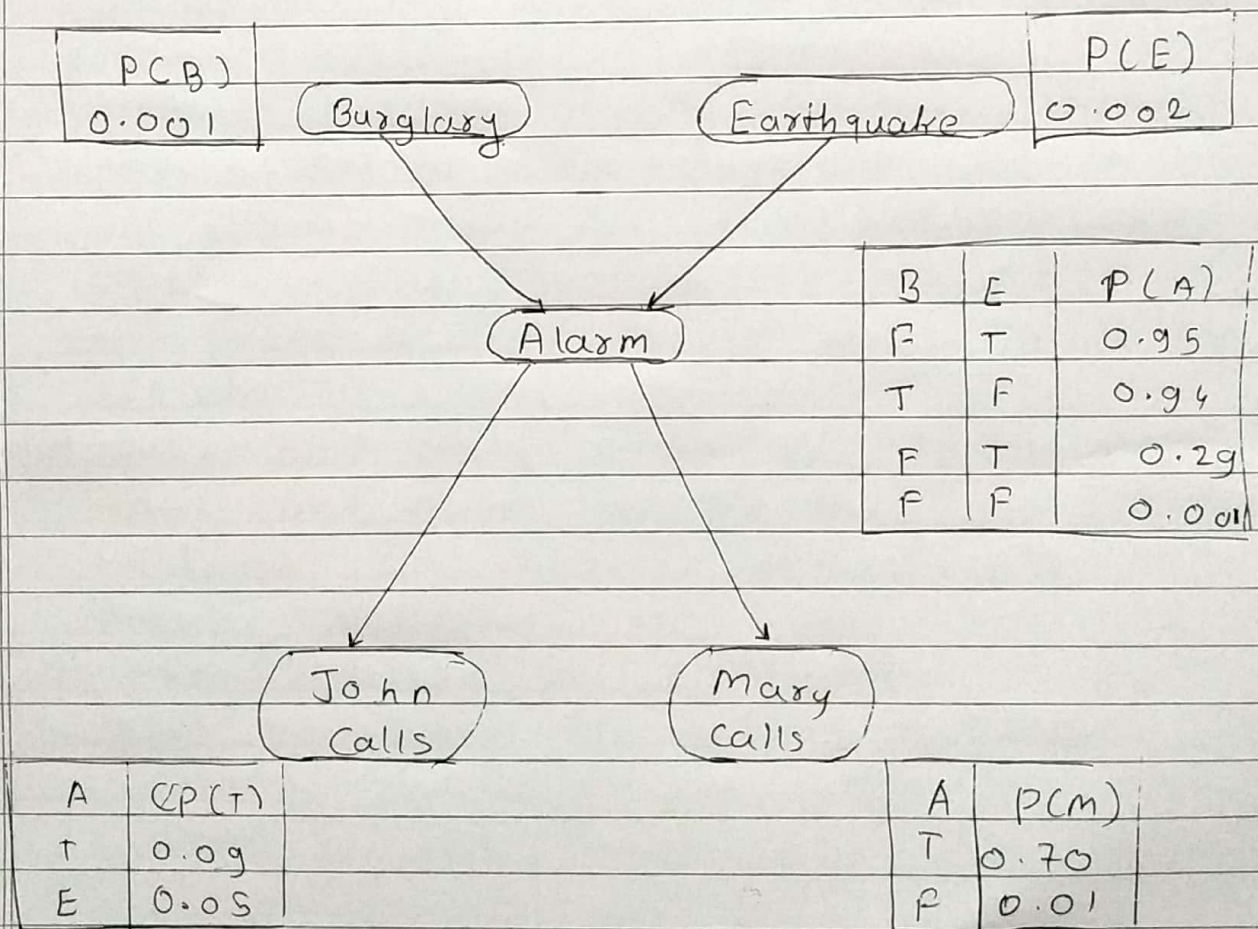 P(B)
0.001
Burglary
Earthquake
P(E)
0.002
Alarm
B E P(A)
F T 0.95
T F 0.94
F T 0.29
F F 0.001
John
Calls
Mary
Calls
A P(T)
T 0.09
E 0.05
A P(M)
T 0.70
F 0.01